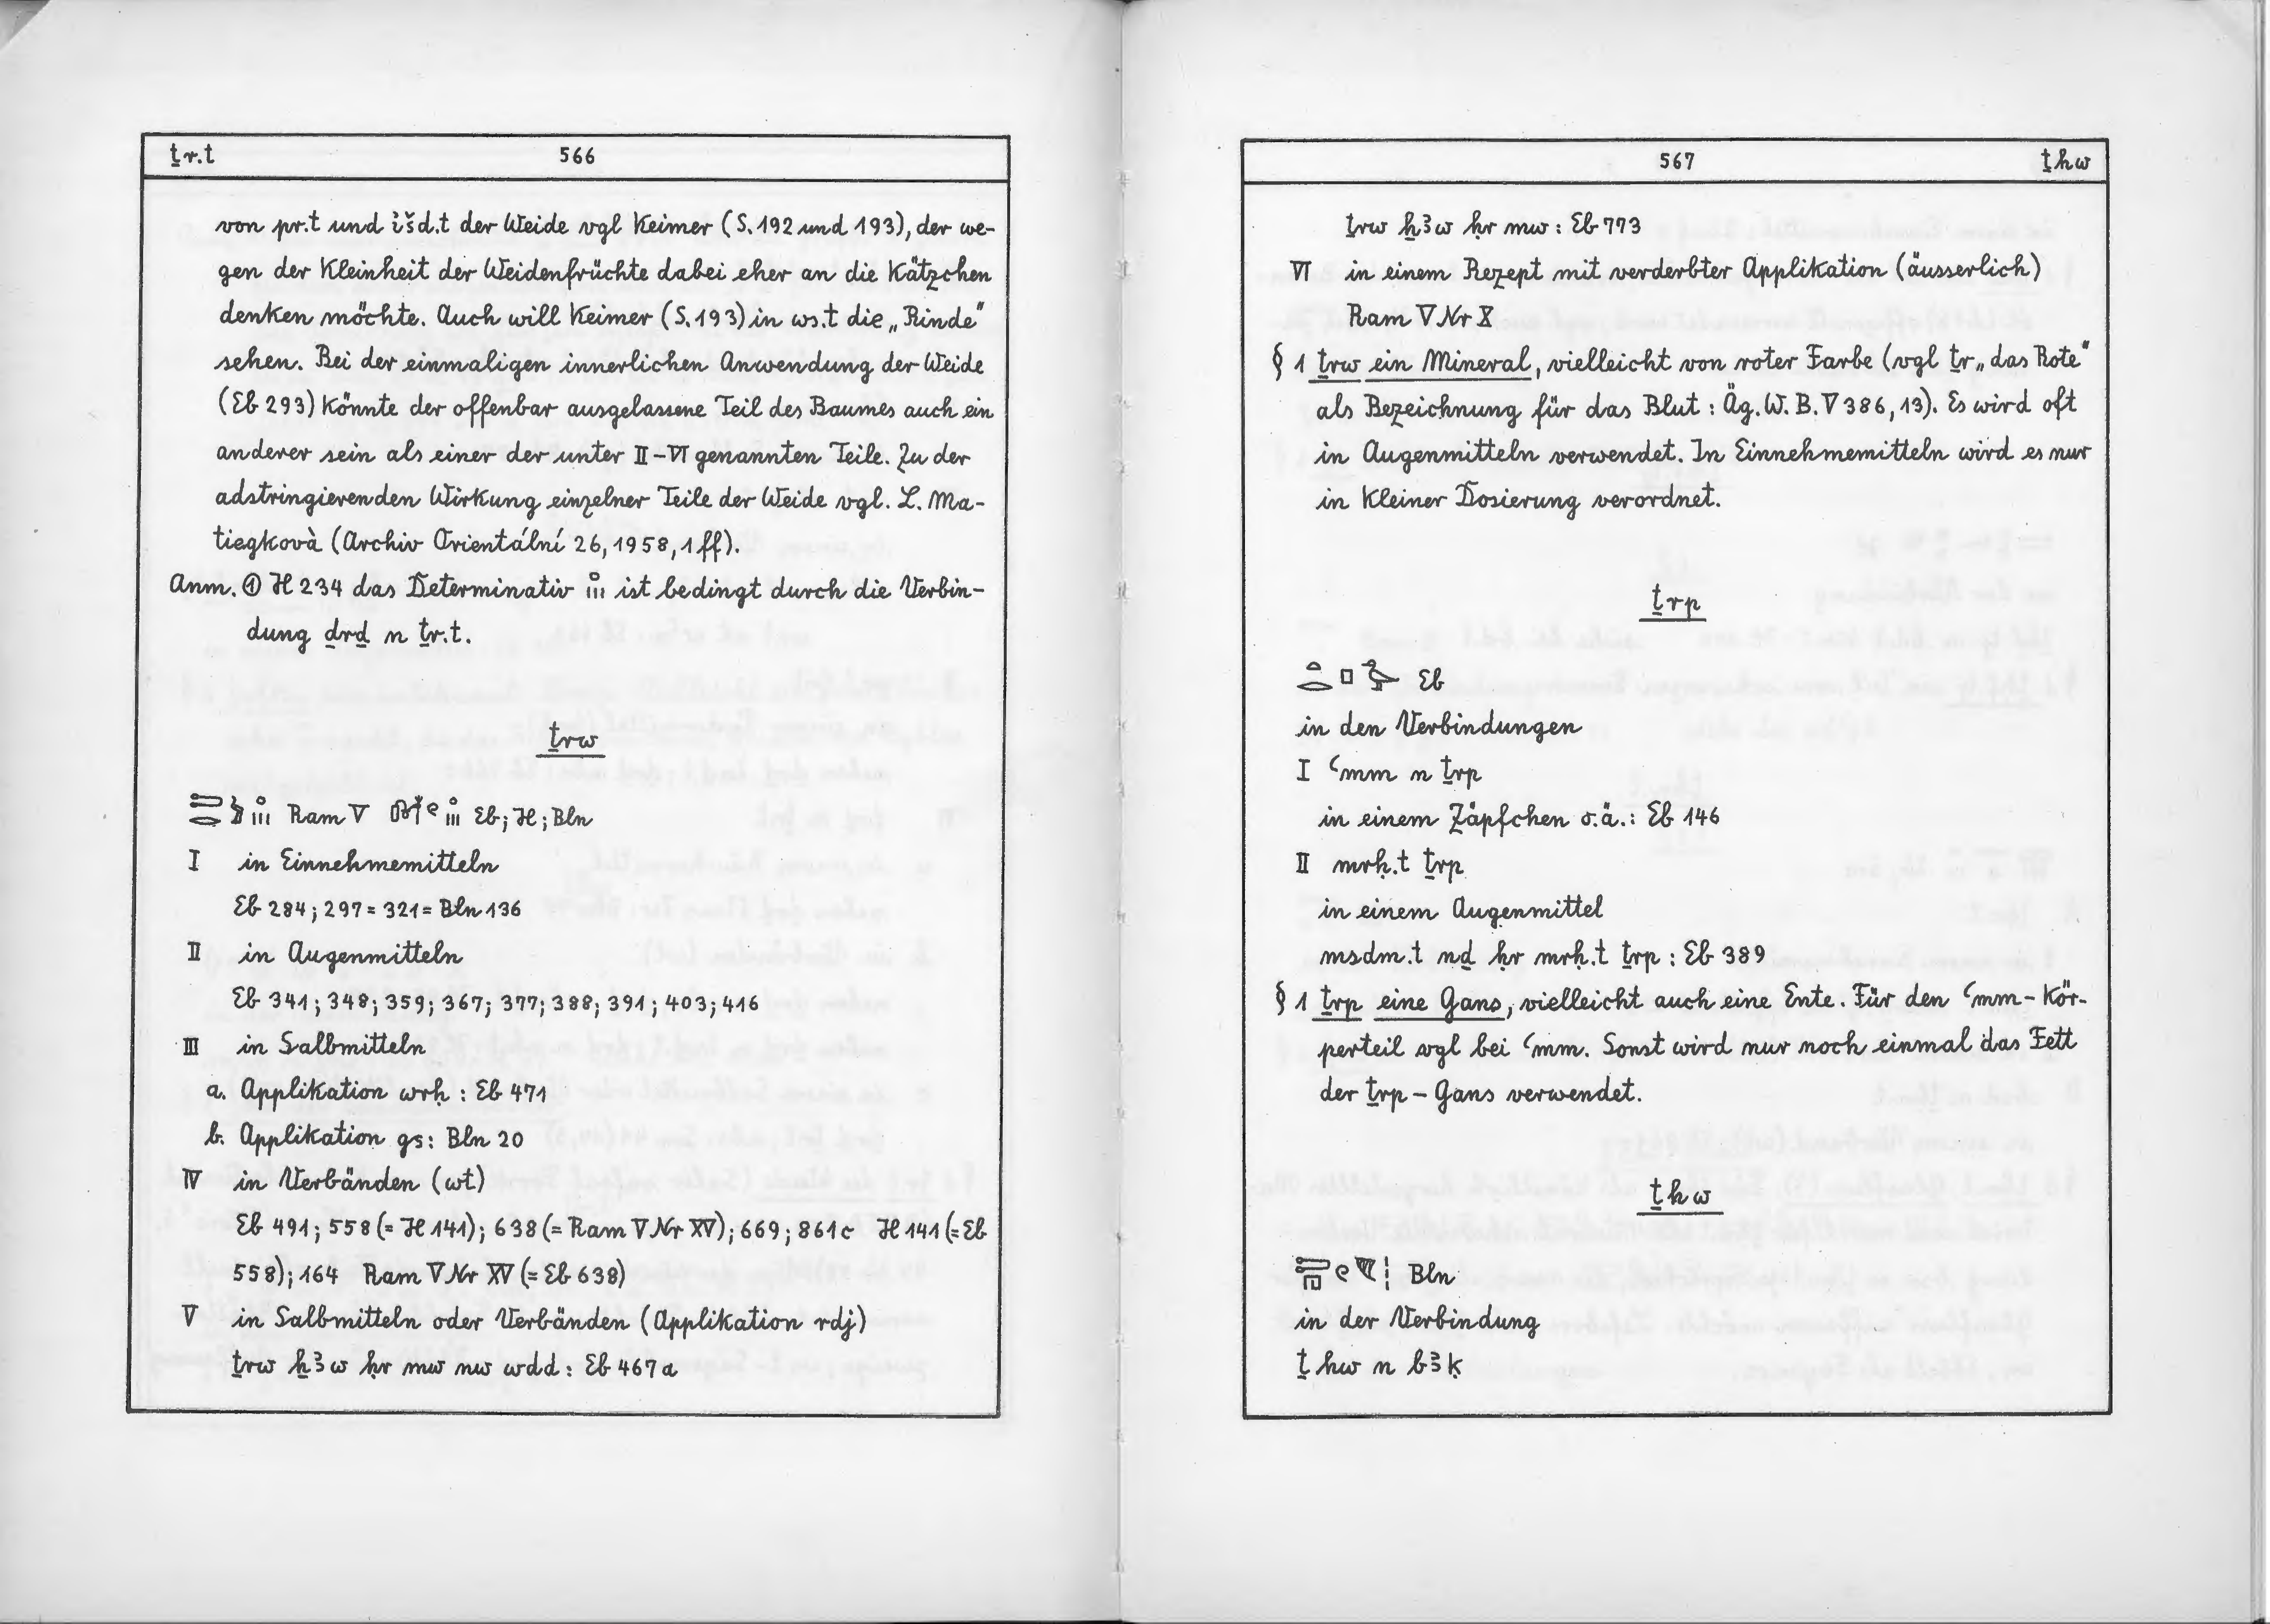 ṯr.t 566
von pr.t und išd.t der Weide vgl Keimer (S. 192 und 193), der we-
gen der Kleinheit der Weidenfrüchte dabei eher an die Kätzchen
denken möchte. Auch will Keimer (S. 193) in ws.t die „Rinde“
sehen. Bei der einmaligen innerlichen Anwendung der Weide
(Eb 293) könnte der offenbar ausgelassene Teil des Baumes auch ein
anderer sein als einer der unter II-VI genannten Teile. Zu der
adstringierenden Wirkung einzelner Teile der Weide vgl. L. Ma-
tiegkovà (Archiv Orientální 26, 1958, 1 ff).
Anm. ① H 234 das Determinativ ist bedingt durch die Verbin-
dung ḏrḏ n ṯr.t.
ṯrw
Ram V Eb; H; Bln
I in Einnehmemitteln
Eb 284; 297 = 321 = Bln 136
II in Augenmitteln
Eb 341; 348; 359; 367; 377; 388; 391; 403; 416
III in Salbmitteln
a. Applikation wrḥ : Eb 471
b. Applikation gs: Bln 20
IV in Verbänden (wt)
Eb 491; 558 (= H 141); 638 (= Ram V Nr XV); 669; 861c H 141 (= Eb
558); 164 Ram V Nr XV (= Eb 638)
V in Salbmitteln oder Verbänden (Applikation rdj)
ṯrw ẖꜣw ḥr mw nw wdd : Eb 467a
567 ṯhw
ṯrw ẖꜣw ḥr mw : Eb 773
VI in einem Rezept mit verderbter Applikation (äusserlich)
Ram V Nr X
§ 1 ṯrw ein Mineral, vielleicht von roter Farbe (vgl ṯr „das Rote“
als Bezeichnung für das Blut : Äg. W. B. V 386, 13). Es wird oft
in Augenmitteln verwendet. In Einnehmemitteln wird es nur
in kleiner Dosierung verordnet.
ṯrp
Eb
in den Verbindungen
I ꜥmm n ṯrp
in einem Zäpfchen o.ä.: Eb 146
II mrḥ.t ṯrp
in einem Augenmittel
msdm.t nḏ ḥr mrḥ.t ṯrp : Eb 389
§ 1 ṯrp eine Gans, vielleicht auch eine Ente. Für den ꜥmm-Kör-
perteil vgl bei ꜥmm. Sonst wird nur noch einmal das Fett
der ṯrp-Gans verwendet.
ṯhw
Bln
in der Verbindung
ṯhw n bꜣk